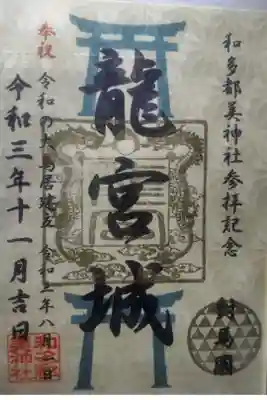 和多都美神社参拝記念
對馬國
龍宮城
奉祝 令和の大鳥居建立 令和二年八月一日
令和三年十一月吉日